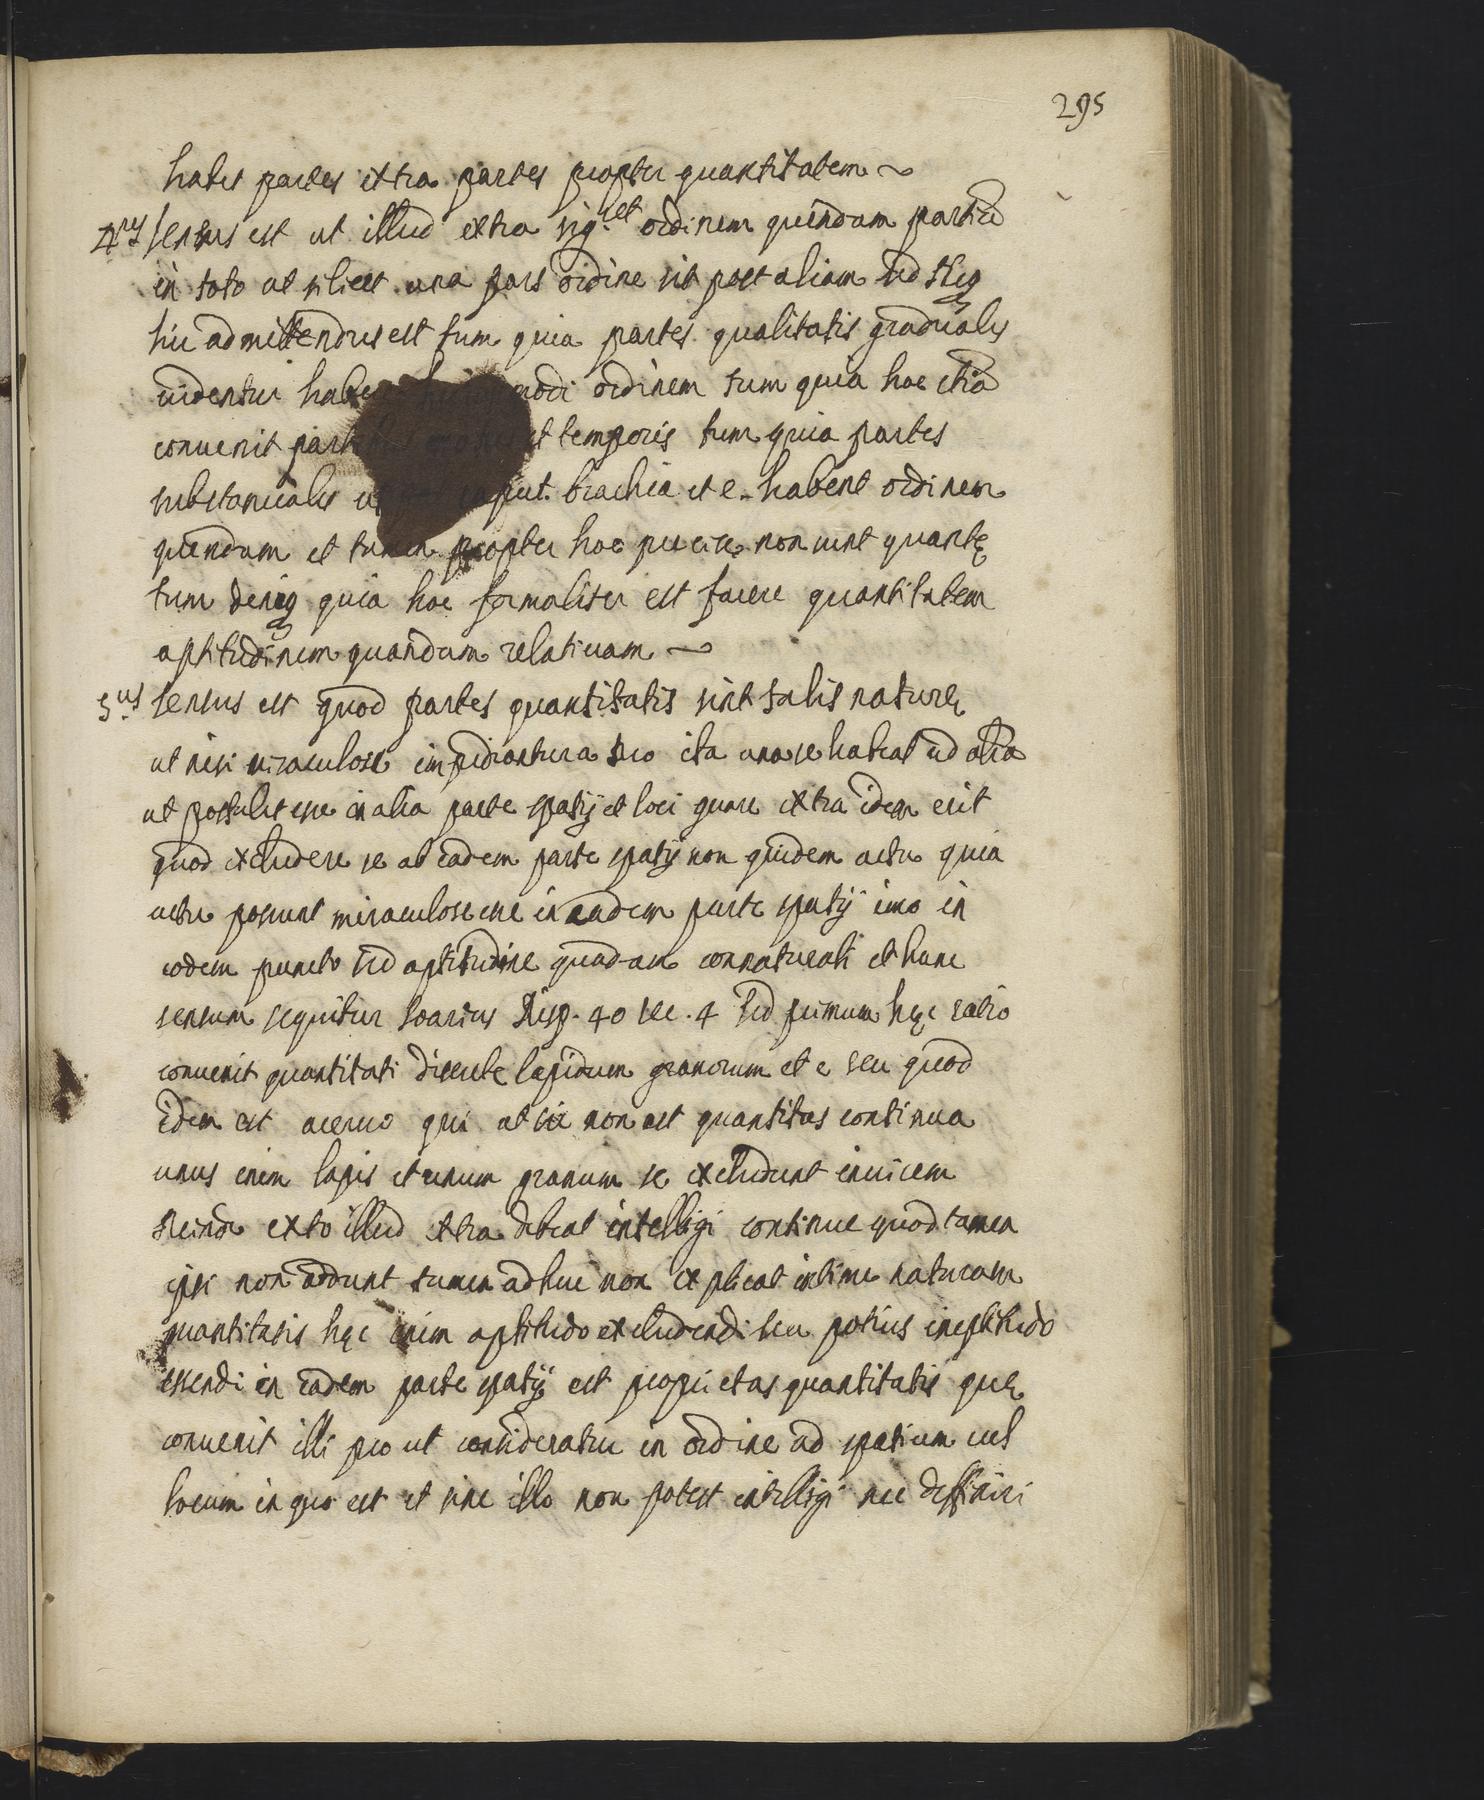 295
habet partes extra partes propter quantitatem
4us sensus est ut illud extra sig.et ordinem quendam partiũ
in toto ut scilicet una pars ordine sit post aliam sed neq
hic admittendus est tum quia partes qualitatis gradualis
uidentur habere huiusmodi ordinem tum quia hoc etiã
conuenit partibus motus et temporis tum quia partes
substantialis ut caput brachia et c. habent ordinem
quendam et tamen propter hoc precise non sunt quantę
tum deniq quia hoc formaliter est facere quantitatem
aptitudinem quandam relatiuam
5.us sensus est quod partes quantitatis sint talis naturę
ut nisi miraculose impediantur a Deo ita una se habeat ad aliã
ut postulet esse in alia parte spatij et loci quare extra idem erit
quod excludere se ab eadem parte spatij non quidem actu quia
actu possunt miraculose esse in eadem parte spatij imo in
eodem puncto sed aptitudine quadam connaturali et hunc
sensum sequitur Soarius Disp. 40 sec. 4 sed primum hęc ratio
conuenit quantitati discretę lapidum granorum et c seu quod
idem est aceruo qui ut sic non est quantitas continua
unus enim lapis et unum granum se excludunt inuicem
Deinde exto illud extra debeat intelligi continue quod tamen
ipsi non addunt tamen adhuc non explicat intime naturam
quantitatis hęc enim aptitudo excludendi seu potius ineptitudo
essendi in eadem parte spatij est proprietas quantitatis quę
conuenit illi pro ut consideratur in ordine ad spatium uel
locum in quo est et sine illo non potest intelligi nec deffiniri